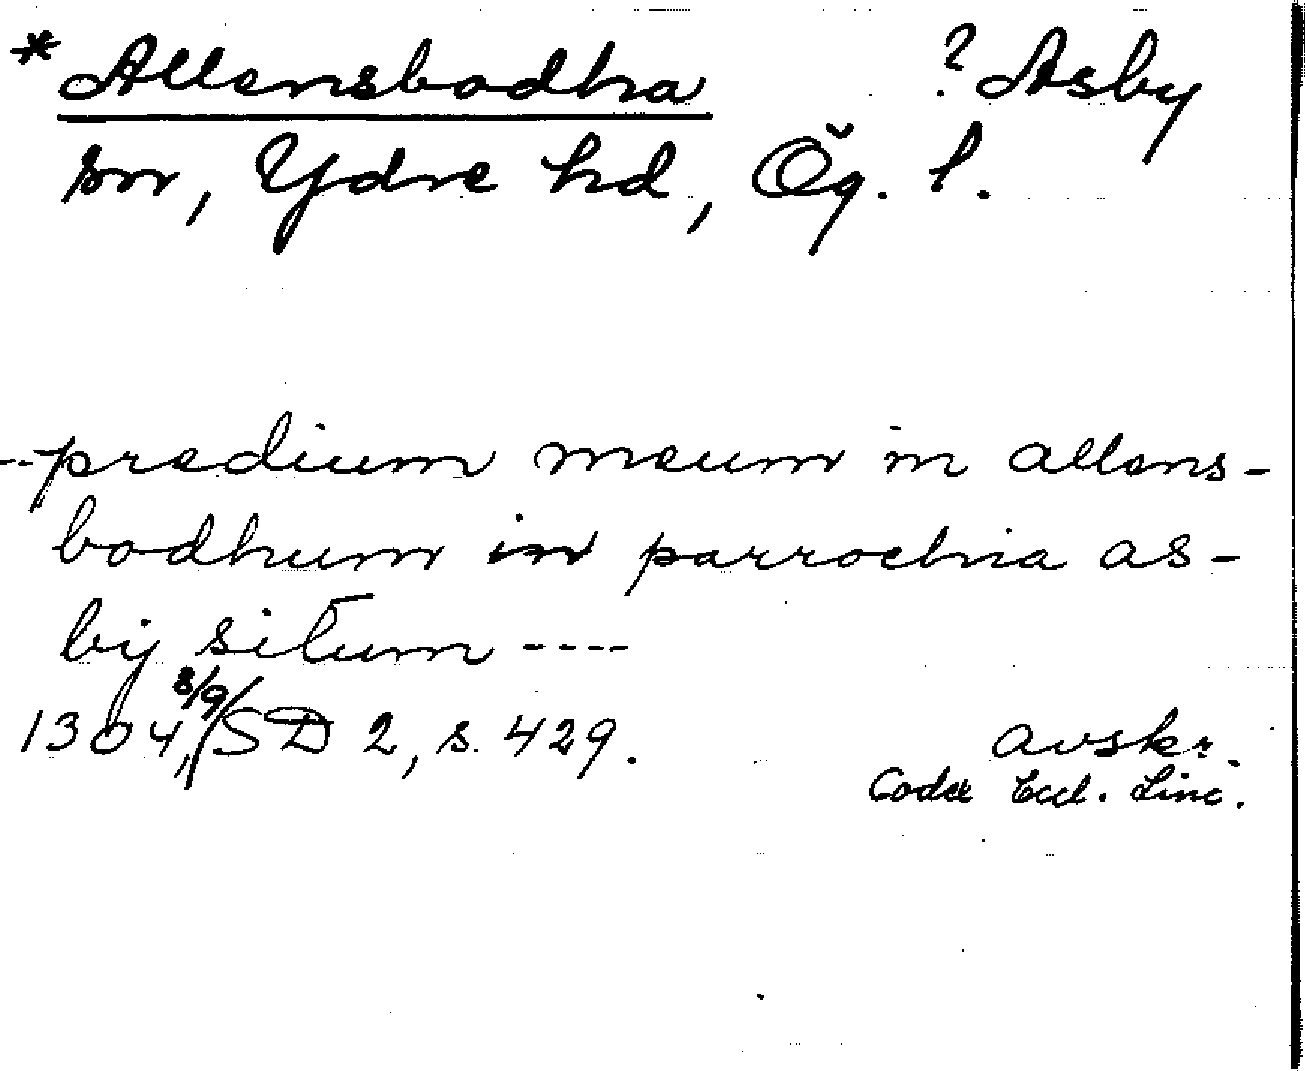 * Allensbodha ? Asby
sn, Ydre hd, Ög. l.
--predium meum in allens-
bodhum in parrochia as-
by situm ----
1304, 8/9/ SD 2, s. 429. avskr.
Codex Eccl. Linc.